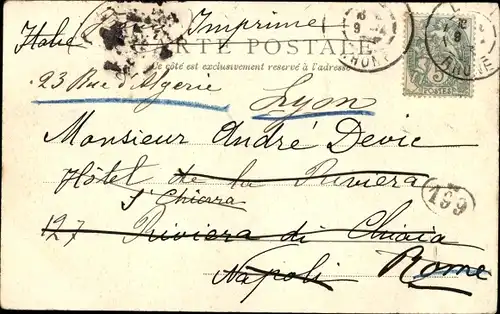 Italie Imprimé
CARTE POSTALE
Ce côté est exclusivement réservé à l'adresse
23 Rue d'Algérie Lyon
RHONE
RHONE
POSTES
Monsieur André Devic
Hôtel de la Riviera
127 Riviera di Chiaia
Napoli Rome
199